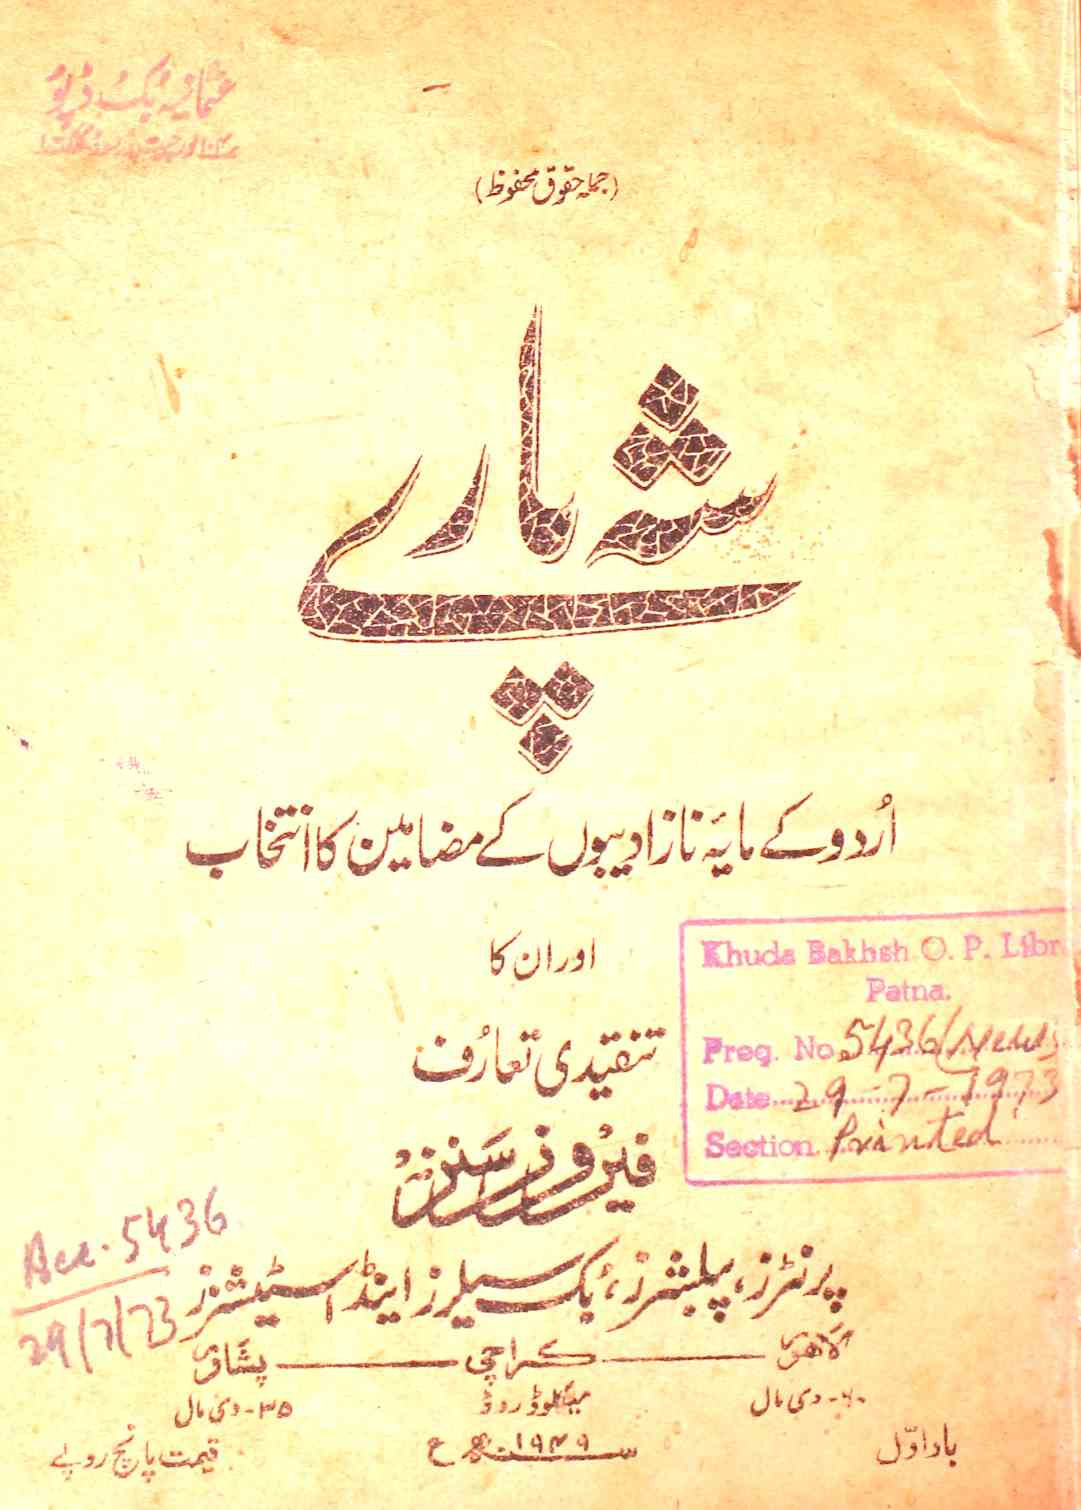 عثمانیہ بک ڈپو
(جملہ حقوق محفوظ)
شہ پارے
اُردو کے مایۂ ناز ادیبوں کے مضامین کا انتخاب
اور ان کا
تنقیدی تعارُف
Khuda Bakhsh O. P. Libr
Patna.
Preg. No 5436 (News
Date 29-7-1973
Section Printed
فیروز سنز
Acc. 5436
29/7/73
پرنٹرز، پبلشرز، بُک سیلرز اینڈ اسٹیشنرز
لاہور — کراچی — پشاور
۶۰- دی مال میکلوڈ روڈ ۳۵- دی مال
بار اوّل سنہ ۱۹۴۹ء قیمت پانچ روپے